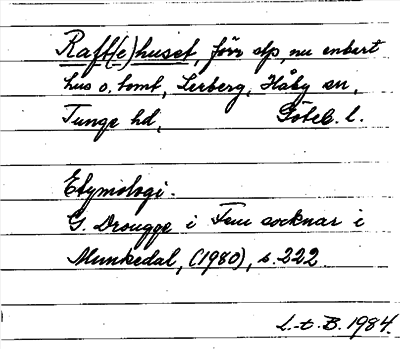 Raft(e)huset, förr stp, nu enbart
hus o. tomt, Lerberg, Håby sn,
Tunge hd, Göteb. l.
Etymologi.
G. Drougge i Fem socknar i
Munkedal, (1980), s. 222
L.-t. B. 1984.